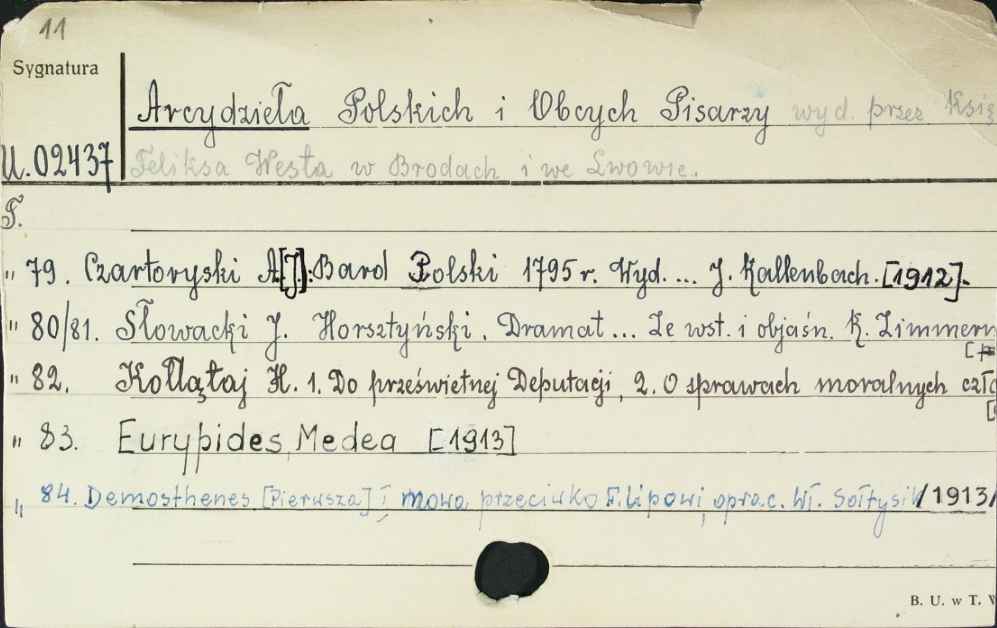 11
Sygnatura
Arcydzieła Polskich i Obcych Pisarzy wyd. przez Księ
U.02437
Feliksa Westa w Brodach i we Lwowie.
T.
" 79. Czartoryski A[J]: Bard Polski 1795 r. Wyd. ... J. Kallenbach. [1912].
" 80/81. Słowacki J. Horsztyński. Dramat ... Ze wst. i objaśn. K. Zimmerm
" 82. Kołłątaj H. 1. Do prześwietnej Deputacji, 2. O sprawach moralnych czło
" 83. Eurypides, Medea [1913]
" 84. Demosthenes, [Pierwsza] I, mowa przeciwko Filipowi, oprac. Wł. Sołtysik /1913/
B. U. w T.